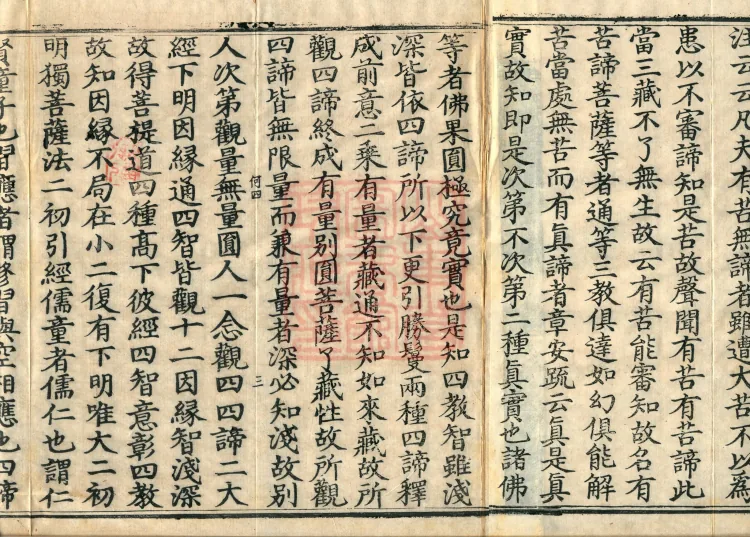 注云云凡夫有苦無諦者雖遭大苦不以爲
患以不審諦知是苦故聲聞有苦有苦諦此
當三藏不了無生故云有苦能審知故名有
苦諦菩薩等者通等三教俱達如幻俱能解
苦當處無苦而有真諦者章安䟽云真是真
實故知即是次第不次第二種真實也諸佛
等者佛果圓極究竟實也是知四教智雖淺
深皆依四諦所以下更引勝鬘兩種四諦釋
成前意二乗有量者藏通不知如來藏故所
觀四諦終成有量別圓菩薩了藏性故所觀
四諦皆無限量而兼有量者深必知淺故別
何四
三
人次第觀量無量圓人一念觀四四諦二大
經下明因縁通四智皆觀十二因縁智淺深
故得菩提道四種髙下彼經四智意彰四教
故知因縁不局在小二復有下明唯大二初
明獨菩薩法二初引經儒童者儒仁也謂仁
賢童子也習應者謂修習與空相應也四諦